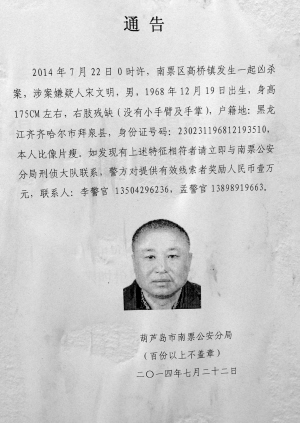 通 告
2014年7月22日0时许，南票区高桥镇发生一起凶杀
案，涉案嫌疑人宋文明，男，1968年12月19日出生，身高
175CM左右，右肢残缺（没有小手臂及手掌），户籍地：黑龙
江齐齐哈尔市拜泉县，身份证号码：230231196812193510，
本人比像片瘦。如发现有上述特征相符者请立即与南票公安
分局刑侦大队联系，警方对提供有效线索者奖励人民币壹万
元，联系人：李警官 13504296236，孟警官 13898919663。
葫芦岛市南票公安分局
（百份以上不盖章）
二〇一四年七月二十二日